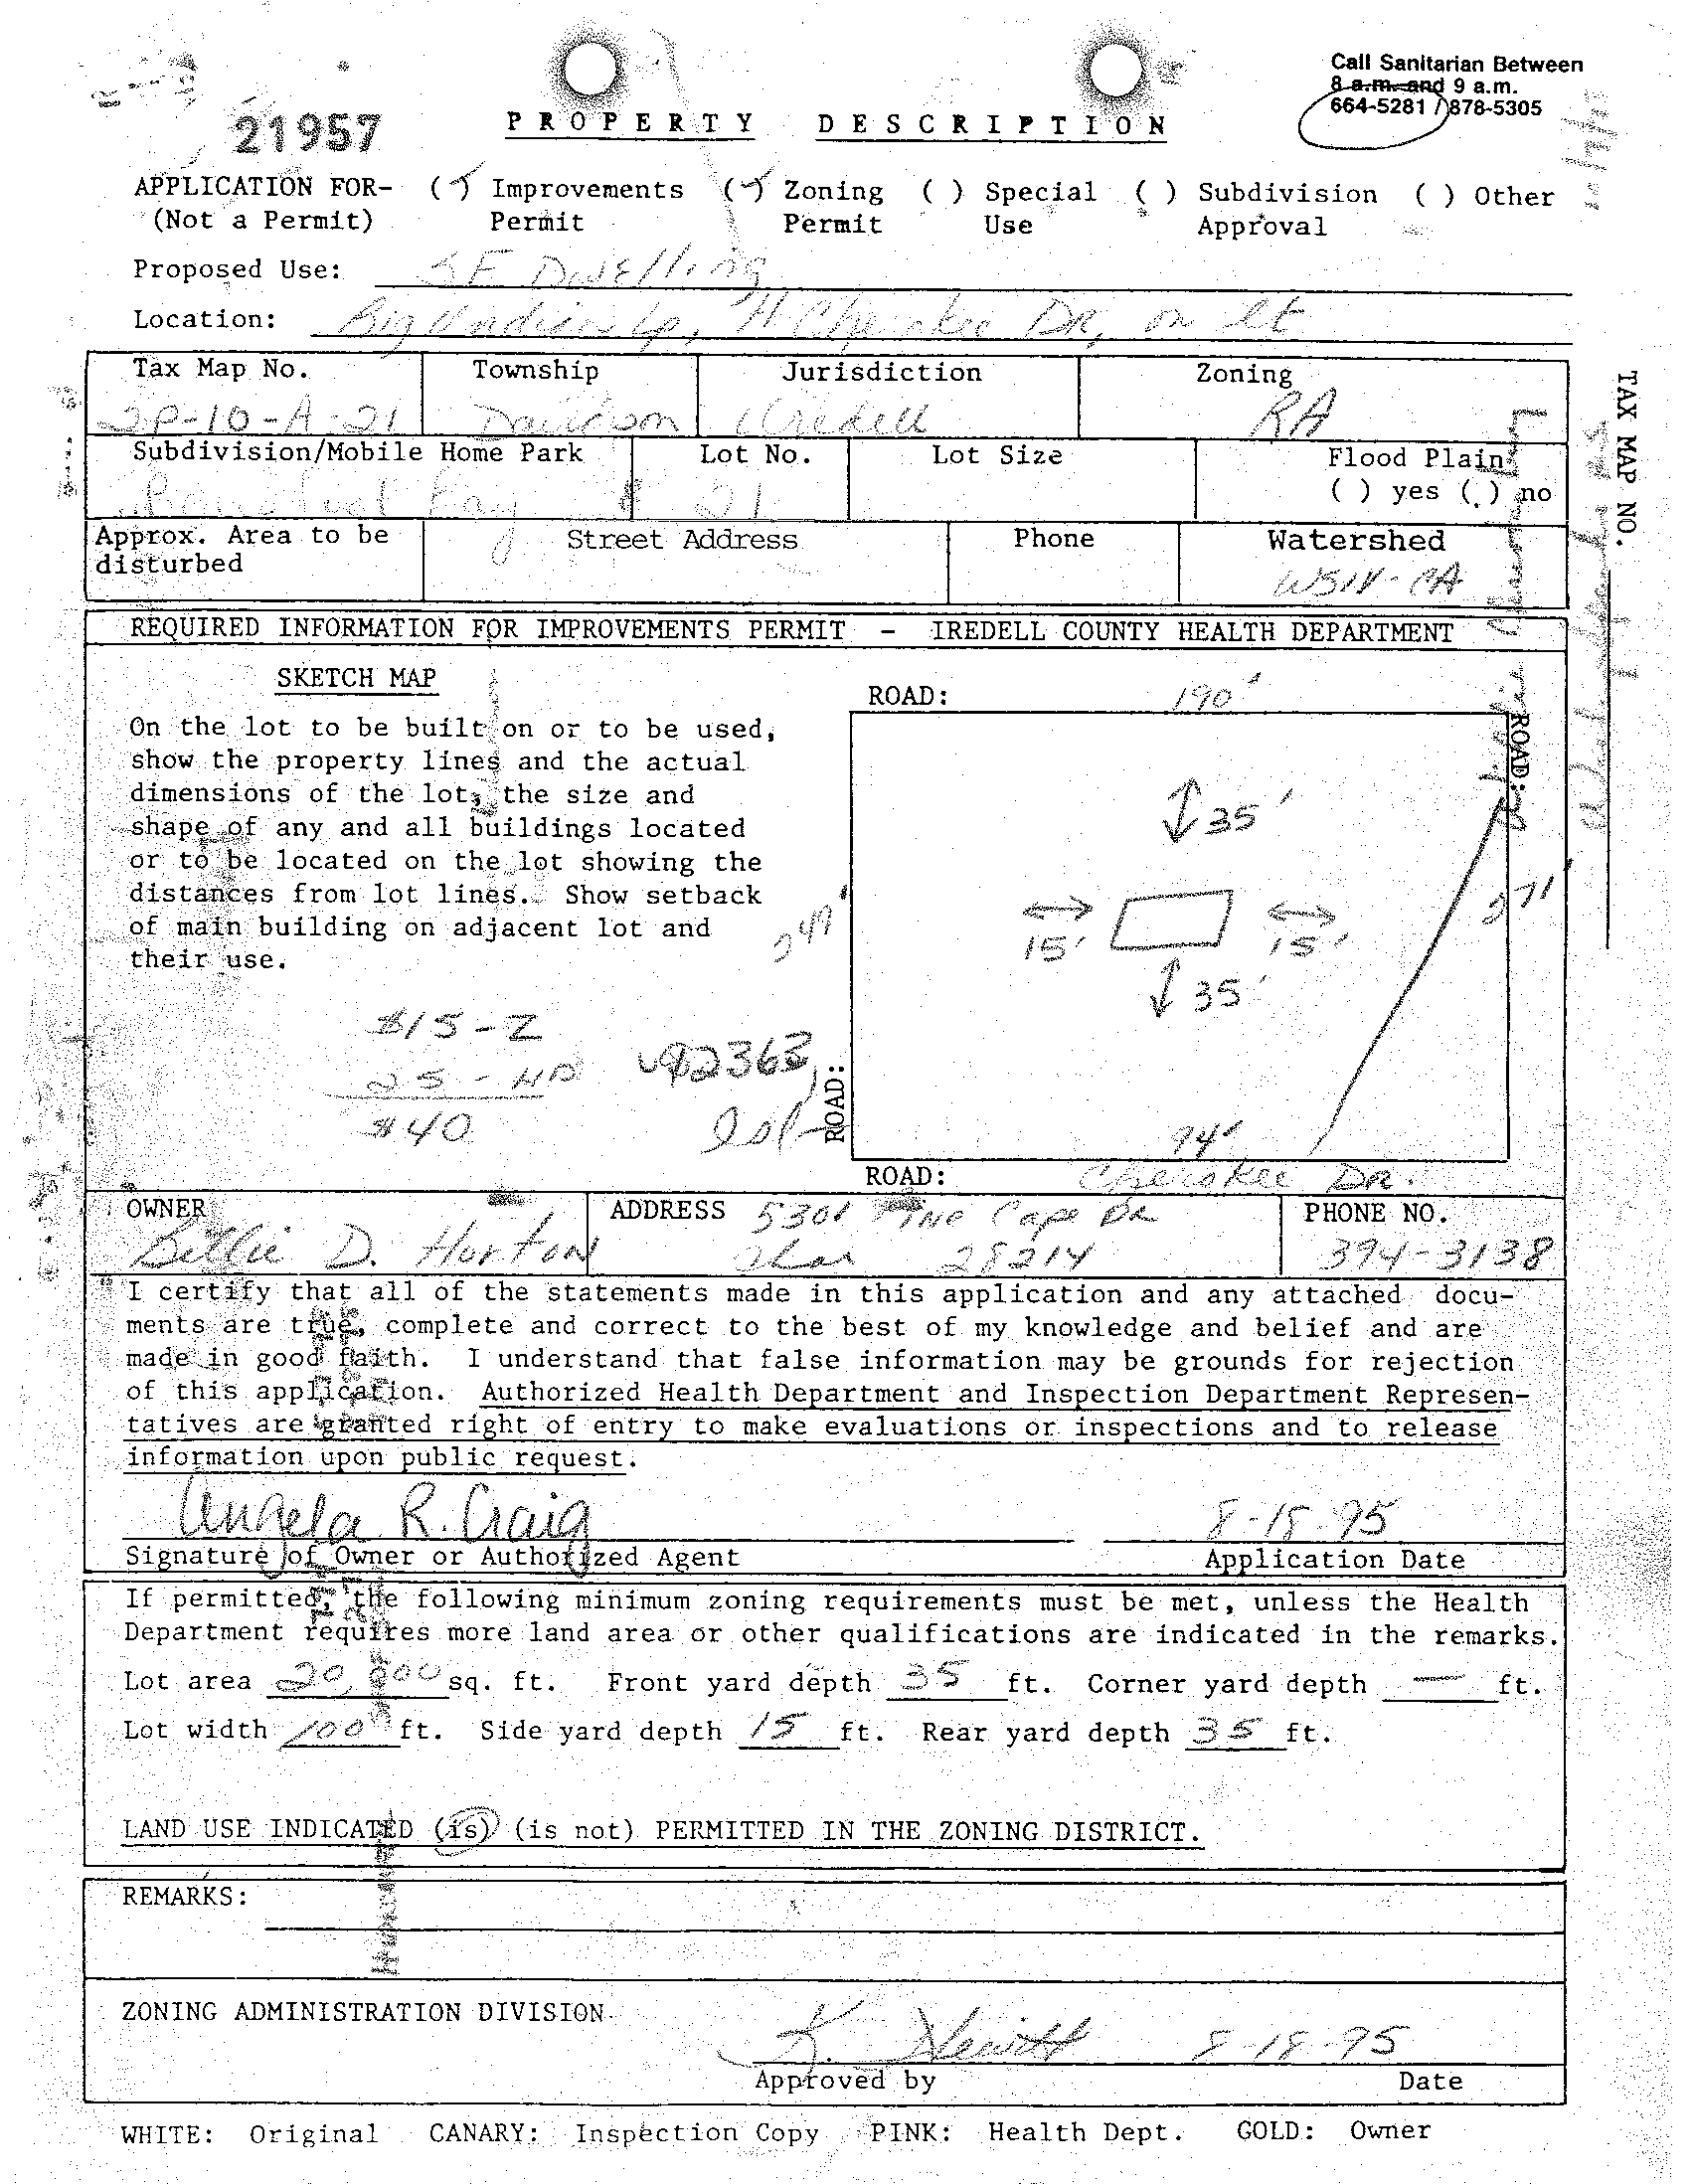 Call Sanitarian Between
8 a.m. and 9 a.m.
664-5281 / 878-5305
21957
PROPERTY DESCRIPTION
APPLICATION FOR- (✓) Improvements (✓) Zoning ( ) Special ( ) Subdivision ( ) Other
(Not a Permit) Permit Permit Use Approval
Proposed Use: SF Dwelling
Location: Big Indian Lp, Cherokee DR, on lt
Tax Map No. Township Jurisdiction Zoning
2P-10-A-21 Davidson Iredell RA
Subdivision/Mobile Home Park Lot No. Lot Size Flood Plain
21 ( ) yes ( ) no
Approx. Area to be disturbed Street Address Phone Watershed
WSIV-CA
TAX MAP NO.
REQUIRED INFORMATION FOR IMPROVEMENTS PERMIT - IREDELL COUNTY HEALTH DEPARTMENT
SKETCH MAP
On the lot to be built on or to be used,
show the property lines and the actual
dimensions of the lot, the size and
shape of any and all buildings located
or to be located on the lot showing the
distances from lot lines. Show setback
of main building on adjacent lot and
their use.
$15-Z
25 - HD
$40
ROAD: 190'
ROAD:
35'
249'
15' 15'
271'
35'
ROAD:
94'
ROAD: Cherokee DR.
OWNER ADDRESS 5301 Pine Cape DR PHONE NO.
Billie D. Horton Char 28214 394-3138
I certify that all of the statements made in this application and any attached docu-
ments are true, complete and correct to the best of my knowledge and belief and are
made in good faith. I understand that false information may be grounds for rejection
of this application. Authorized Health Department and Inspection Department Represen-
tatives are granted right of entry to make evaluations or inspections and to release
information upon public request.
Angela R. Craig 8-18-95
Signature of Owner or Authorized Agent Application Date
If permitted, the following minimum zoning requirements must be met, unless the Health
Department requires more land area or other qualifications are indicated in the remarks.
Lot area 20,000 sq. ft. Front yard depth 35 ft. Corner yard depth — ft.
Lot width 100 ft. Side yard depth 15 ft. Rear yard depth 35 ft.
LAND USE INDICATED (is) (is not) PERMITTED IN THE ZONING DISTRICT.
REMARKS:
ZONING ADMINISTRATION DIVISION
K. Hewitt 8-18-95
Approved by Date
WHITE: Original CANARY: Inspection Copy PINK: Health Dept. GOLD: Owner